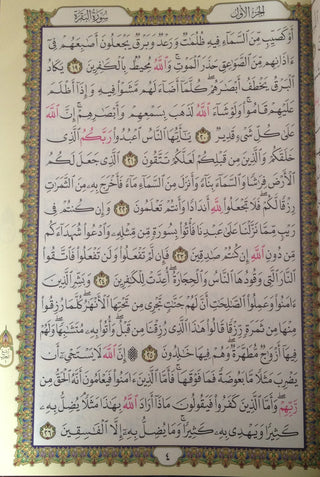 سُورَةُ الْبَقَرَةِ الجزء الأول
أَوْ كَصَيِّبٍ مِّنَ السَّمَآءِ فِيهِ ظُلُمَٰتٌ وَرَعْدٌ وَبَرْقٌ يَجْعَلُونَ أَصَٰبِعَهُمْ فِىٓ
ءَاذَانِهِم مِّنَ الصَّوَٰعِقِ حَذَرَ الْمَوْتِ ۚ وَاللَّهُ مُحِيطٌۢ بِالْكَٰفِرِينَ ١٩ يَكَادُ
الْبَرْقُ يَخْطَفُ أَبْصَٰرَهُمْ ۖ كُلَّمَآ أَضَآءَ لَهُم مَّشَوْا۟ فِيهِ وَإِذَآ أَظْلَمَ
عَلَيْهِمْ قَامُوا۟ ۚ وَلَوْ شَآءَ اللَّهُ لَذَهَبَ بِسَمْعِهِمْ وَأَبْصَٰرِهِمْ ۚ إِنَّ اللَّهَ
عَلَىٰ كُلِّ شَىْءٍ قَدِيرٌ ٢٠ يَٰٓأَيُّهَا النَّاسُ اعْبُدُوا۟ رَبَّكُمُ الَّذِى
خَلَقَكُمْ وَالَّذِينَ مِن قَبْلِكُمْ لَعَلَّكُمْ تَتَّقُونَ ٢١ الَّذِى جَعَلَ لَكُمُ
الْأَرْضَ فِرَٰشًا وَالسَّمَآءَ بِنَآءً وَأَنزَلَ مِنَ السَّمَآءِ مَآءً فَأَخْرَجَ بِهِۦ مِنَ الثَّمَرَٰتِ
رِزْقًا لَّكُمْ ۖ فَلَا تَجْعَلُوا۟ لِلَّهِ أَندَادًا وَأَنتُمْ تَعْلَمُونَ ٢٢ وَإِن كُنتُمْ فِى
رَيْبٍ مِّمَّا نَزَّلْنَا عَلَىٰ عَبْدِنَا فَأْتُوا۟ بِسُورَةٍ مِّن مِّثْلِهِۦ وَادْعُوا۟ شُهَدَآءَكُم
مِّن دُونِ اللَّهِ إِن كُنتُمْ صَٰدِقِينَ ٢٣ فَإِن لَّمْ تَفْعَلُوا۟ وَلَن تَفْعَلُوا۟ فَاتَّقُوا۟
النَّارَ الَّتِى وَقُودُهَا النَّاسُ وَالْحِجَارَةُ ۖ أُعِدَّتْ لِلْكَٰفِرِينَ ٢٤ وَبَشِّرِ الَّذِينَ
ءَامَنُوا۟ وَعَمِلُوا۟ الصَّٰلِحَٰتِ أَنَّ لَهُمْ جَنَّٰتٍ تَجْرِى مِن تَحْتِهَا الْأَنْهَٰرُ ۖ كُلَّمَا رُزِقُوا۟
مِنْهَا مِن ثَمَرَةٍ رِّزْقًا ۙ قَالُوا۟ هَٰذَا الَّذِى رُزِقْنَا مِن قَبْلُ ۖ وَأُتُوا۟ بِهِۦ مُتَشَٰبِهًا ۖ وَلَهُمْ
فِيهَآ أَزْوَٰجٌ مُّطَهَّرَةٌ ۖ وَهُمْ فِيهَا خَٰلِدُونَ ٢٥ ۞ إِنَّ اللَّهَ لَا يَسْتَحْىِۦٓ أَن
يَضْرِبَ مَثَلًا مَّا بَعُوضَةً فَمَا فَوْقَهَا ۚ فَأَمَّا الَّذِينَ ءَامَنُوا۟ فَيَعْلَمُونَ أَنَّهُ الْحَقُّ مِن
رَّبِّهِمْ ۖ وَأَمَّا الَّذِينَ كَفَرُوا۟ فَيَقُولُونَ مَاذَآ أَرَادَ اللَّهُ بِهَٰذَا مَثَلًا ۘ يُضِلُّ بِهِۦ
كَثِيرًا وَيَهْدِى بِهِۦ كَثِيرًا ۚ وَمَا يُضِلُّ بِهِۦٓ إِلَّا الْفَٰسِقِينَ ٢٦
٤